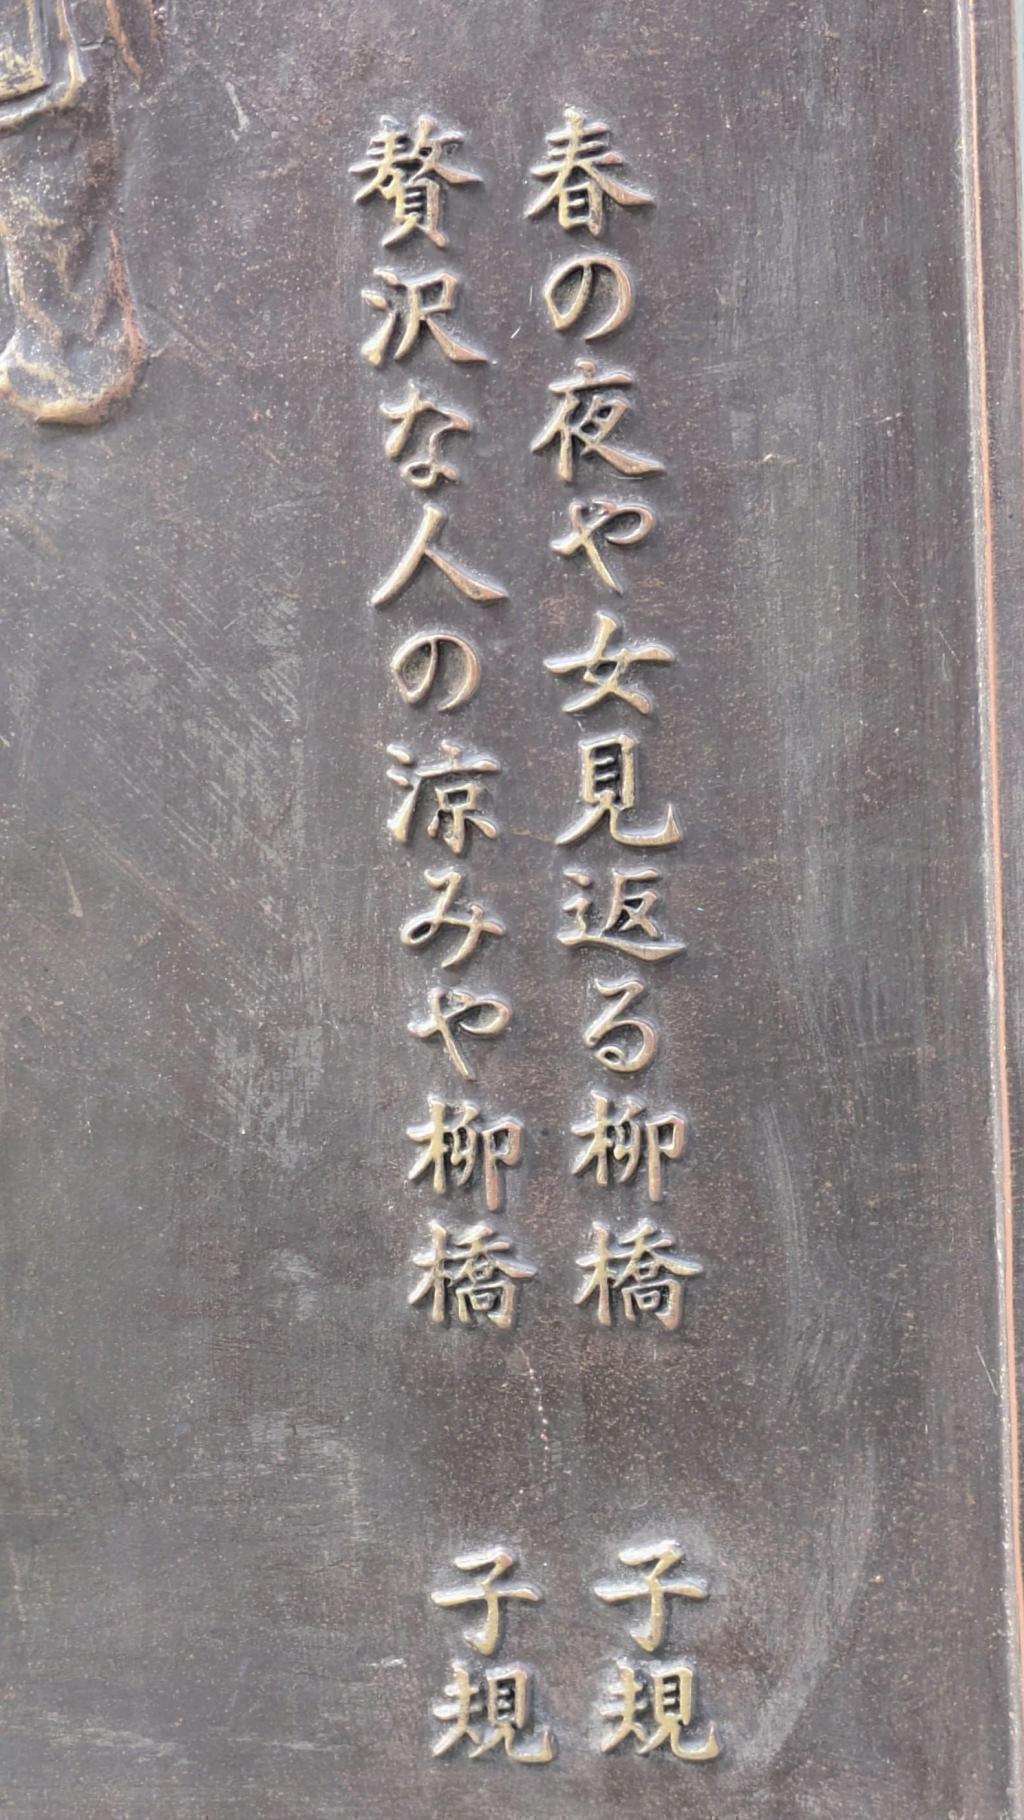 春の夜や女見返る柳橋　子規
贅沢な人の涼みや柳橋　子規